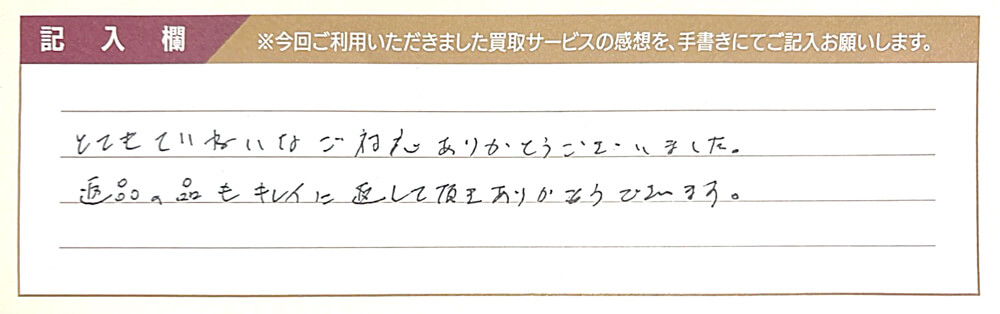 記入欄
※今回ご利用いただきました買取サービスの感想を、手書きにてご記入お願いします。
とてもていねいなご対応ありがとうございました。
返品の品もキレイに返して頂きありがとうございます。